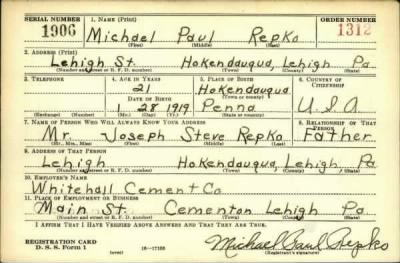 SERIAL NUMBER 1. NAME (Print) ORDER NUMBER
1906 Michael Paul Repko 1312
(First) (Middle) (Last)
2. ADDRESS (Print)
Lehigh St. Hokendauqua, Lehigh Pa.
(Number and street or R. F. D. number) (Town) (County) (State)
3. TELEPHONE 4. AGE IN YEARS 5. PLACE OF BIRTH 6. COUNTRY OF CITIZENSHIP
21 Hokendauqua
(Town or county)
DATE OF BIRTH
1 28 1919 Penna U.S.A
(Exchange) (Number) (Mo.) (Day) (Yr.) (State or country)
7. NAME OF PERSON WHO WILL ALWAYS KNOW YOUR ADDRESS 8. RELATIONSHIP OF THAT PERSON
Mr. Joseph Steve Repko Father
(Mr., Mrs., Miss) (First) (Middle) (Last)
9. ADDRESS OF THAT PERSON
Lehigh Hokendauqua, Lehigh Pa
(Number and street or R. F. D. number) (Town) (County) (State)
10. EMPLOYER'S NAME
Whitehall Cement Co
11. PLACE OF EMPLOYMENT OR BUSINESS
Main St. Cementon Lehigh Pa.
(Number and street or R. F. D. number) (Town) (County) (State)
I AFFIRM THAT I HAVE VERIFIED ABOVE ANSWERS AND THAT THEY ARE TRUE.
REGISTRATION CARD
D. S. S. Form 1 (over) Michael Paul Repko
(Registrant's signature)